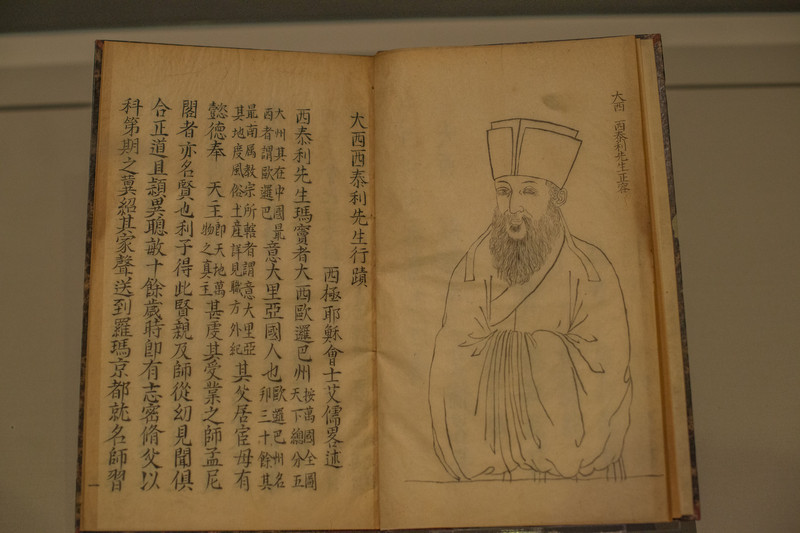 大西 西泰利先生正容
大西西泰利先生行蹟
西極耶穌會士艾儒畧述
西泰利先生瑪竇者大西歐邏巴州按萬國全圖天下總分五
大州其在中國最西者謂歐邏巴意大里亞國人也歐邏巴州名邦三十餘其
最南爲教宗所轄者謂意大里亞其地度風俗土產詳見職方外紀其父居宦母有
懿德奉 天主即天地萬物之真主甚虔其受業之師孟尼
閣者亦名賢也利子得此賢親及師從幼見聞俱
合正道且頴異聰敏十餘歲時卽有志密脩父以
科第期之冀紹其家聲送到羅瑪京都就名師習
一